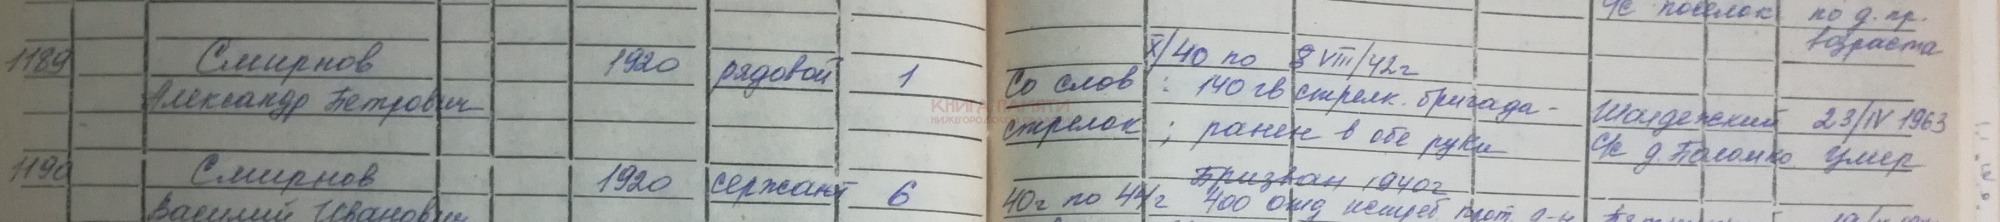 с/с поселок по д. пр.
возраста
1189 Смирнов 1920 рядовой 1 X/40 по 8 VIII/42г
Александр Петрович Со слов: 140 гв стрелк. бригада- 
стрелок; ранен в обе руки Шалдежский 23/IV 1963
с/с д. умер
КНИГА ПАМЯТИ
1190 Смирнов 1920 сержант 6 Призван 1940г
Василий Иванович 40г по 44г 400 отд истреб прот. д-н